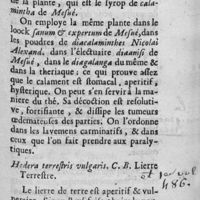 de la plante, qui est le syrop de cala-
mintha de Mesué.
On employe la même plante dans le
loock sanum & expertum de Mesué, dans
les poudres de diacalaminthes Nicolai
Alexand. dans l'électuaire dianisi de
Mesué, dans le diagalanga du même &
dans la theriaque; ce qui prouve assez
que le calament est stomacal, aperitif,
hysterique. On peut s'en servir à la ma-
niere du thé. Sa décoction est resoluti-
ve, fortifiante, & dissipe les tumeurs
œdemateuses des parties. On l'ordonne
dans les lavemens carminatifs, & dans
ceux que l'on fait prendre aux paraly-
tiques.
Hedera terrestris vulgaris. C. B. Lierre
Terrestre.
486.
Le lierre de terre est aperitif & vul-